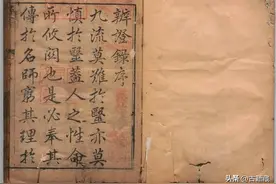 辨證錄序
九流莫難於醫亦莫
慎於醫蓋人之性命
所攸関也是必奉其
傳於名師窮其理於
头条 @古籍